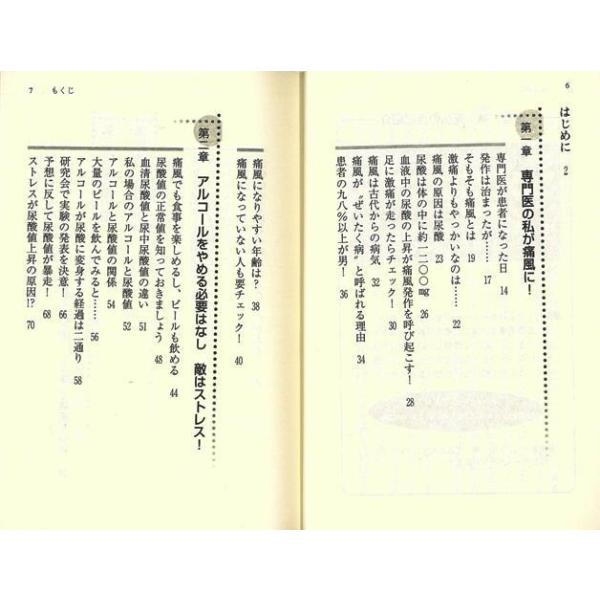 6
はじめに 2
第一章 専門医の私が痛風に!
専門医が患者になった日 14
発作は治まったが…… 17
そもそも痛風とは 19
激痛よりもやっかいなのは…… 22
痛風の原因は尿酸 23
尿酸は体の中に約一二〇〇mg 26
血液中の尿酸の上昇が痛風発作を呼び起こす! 28
足に激痛が走ったらチェック! 30
痛風は古代からの病気 32
痛風が〝ぜいたく病〟と呼ばれる理由 34
患者の九八%以上が男! 36
7 もくじ
痛風になりやすい年齢は? 38
痛風になっていない人も要チェック! 40
第二章 アルコールをやめる必要はなし 敵はストレス!
痛風でも食事を楽しめるし、ビールも飲める 44
尿酸値の正常値を知っておきましょう 48
血清尿酸値と尿中尿酸値の違い 51
私の場合のアルコールと尿酸値 52
アルコールと尿酸値の関係 54
大量のビールを飲んでみると…… 56
アルコールが尿酸に変身する経過は二通り 58
研究会で実験の発表を決意! 66
予想に反して尿酸値が暴走! 68
ストレスが尿酸値上昇の原因!? 70